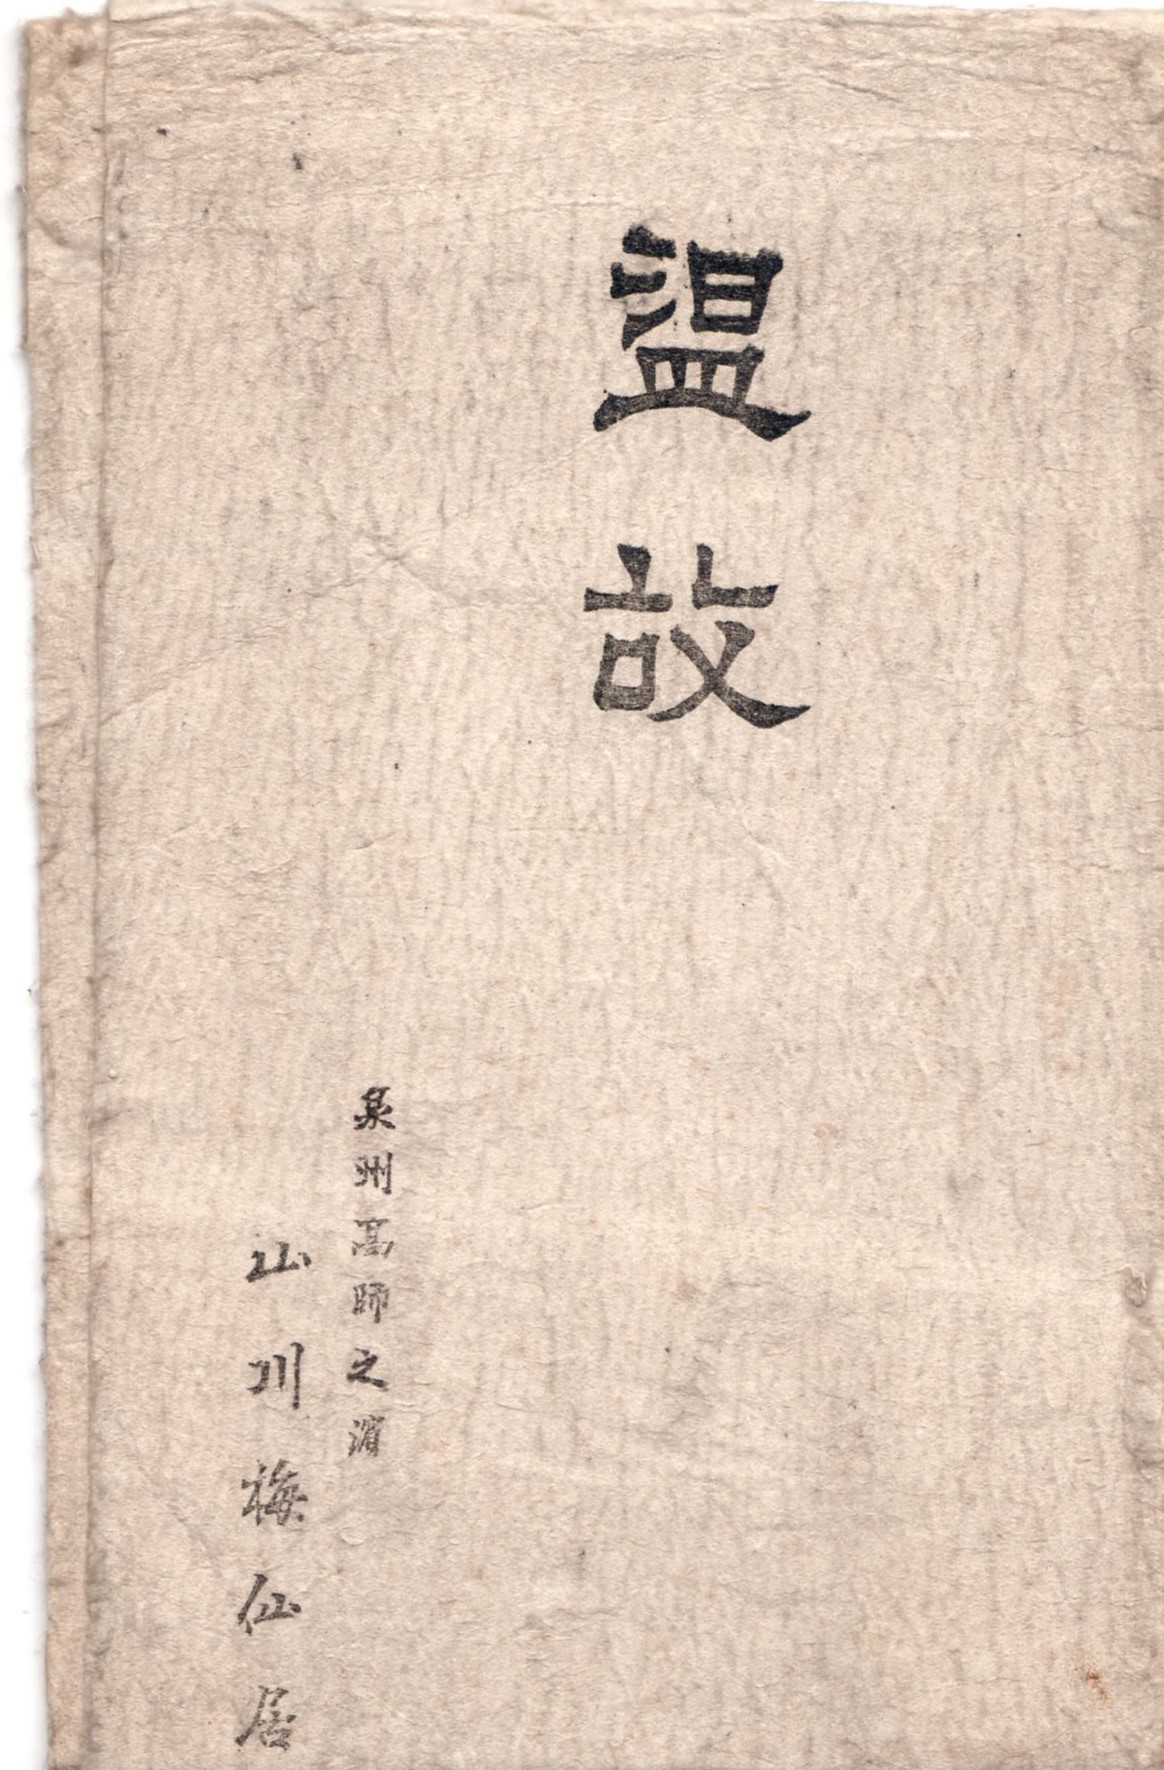 温故
泉州高師之濱
山川梅仙居